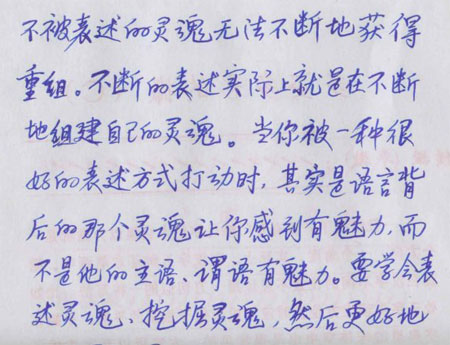 不被表述的灵魂无法不断地获得
重组。不断的表述实际上就是在不断
地组建自己的灵魂。当你被一种很
好的表述方式打动时,其实是语言背
后的那个灵魂让你感到有魅力,而
不是他的主语、谓语有魅力。要学会表
述灵魂、挖掘灵魂,然后更好地